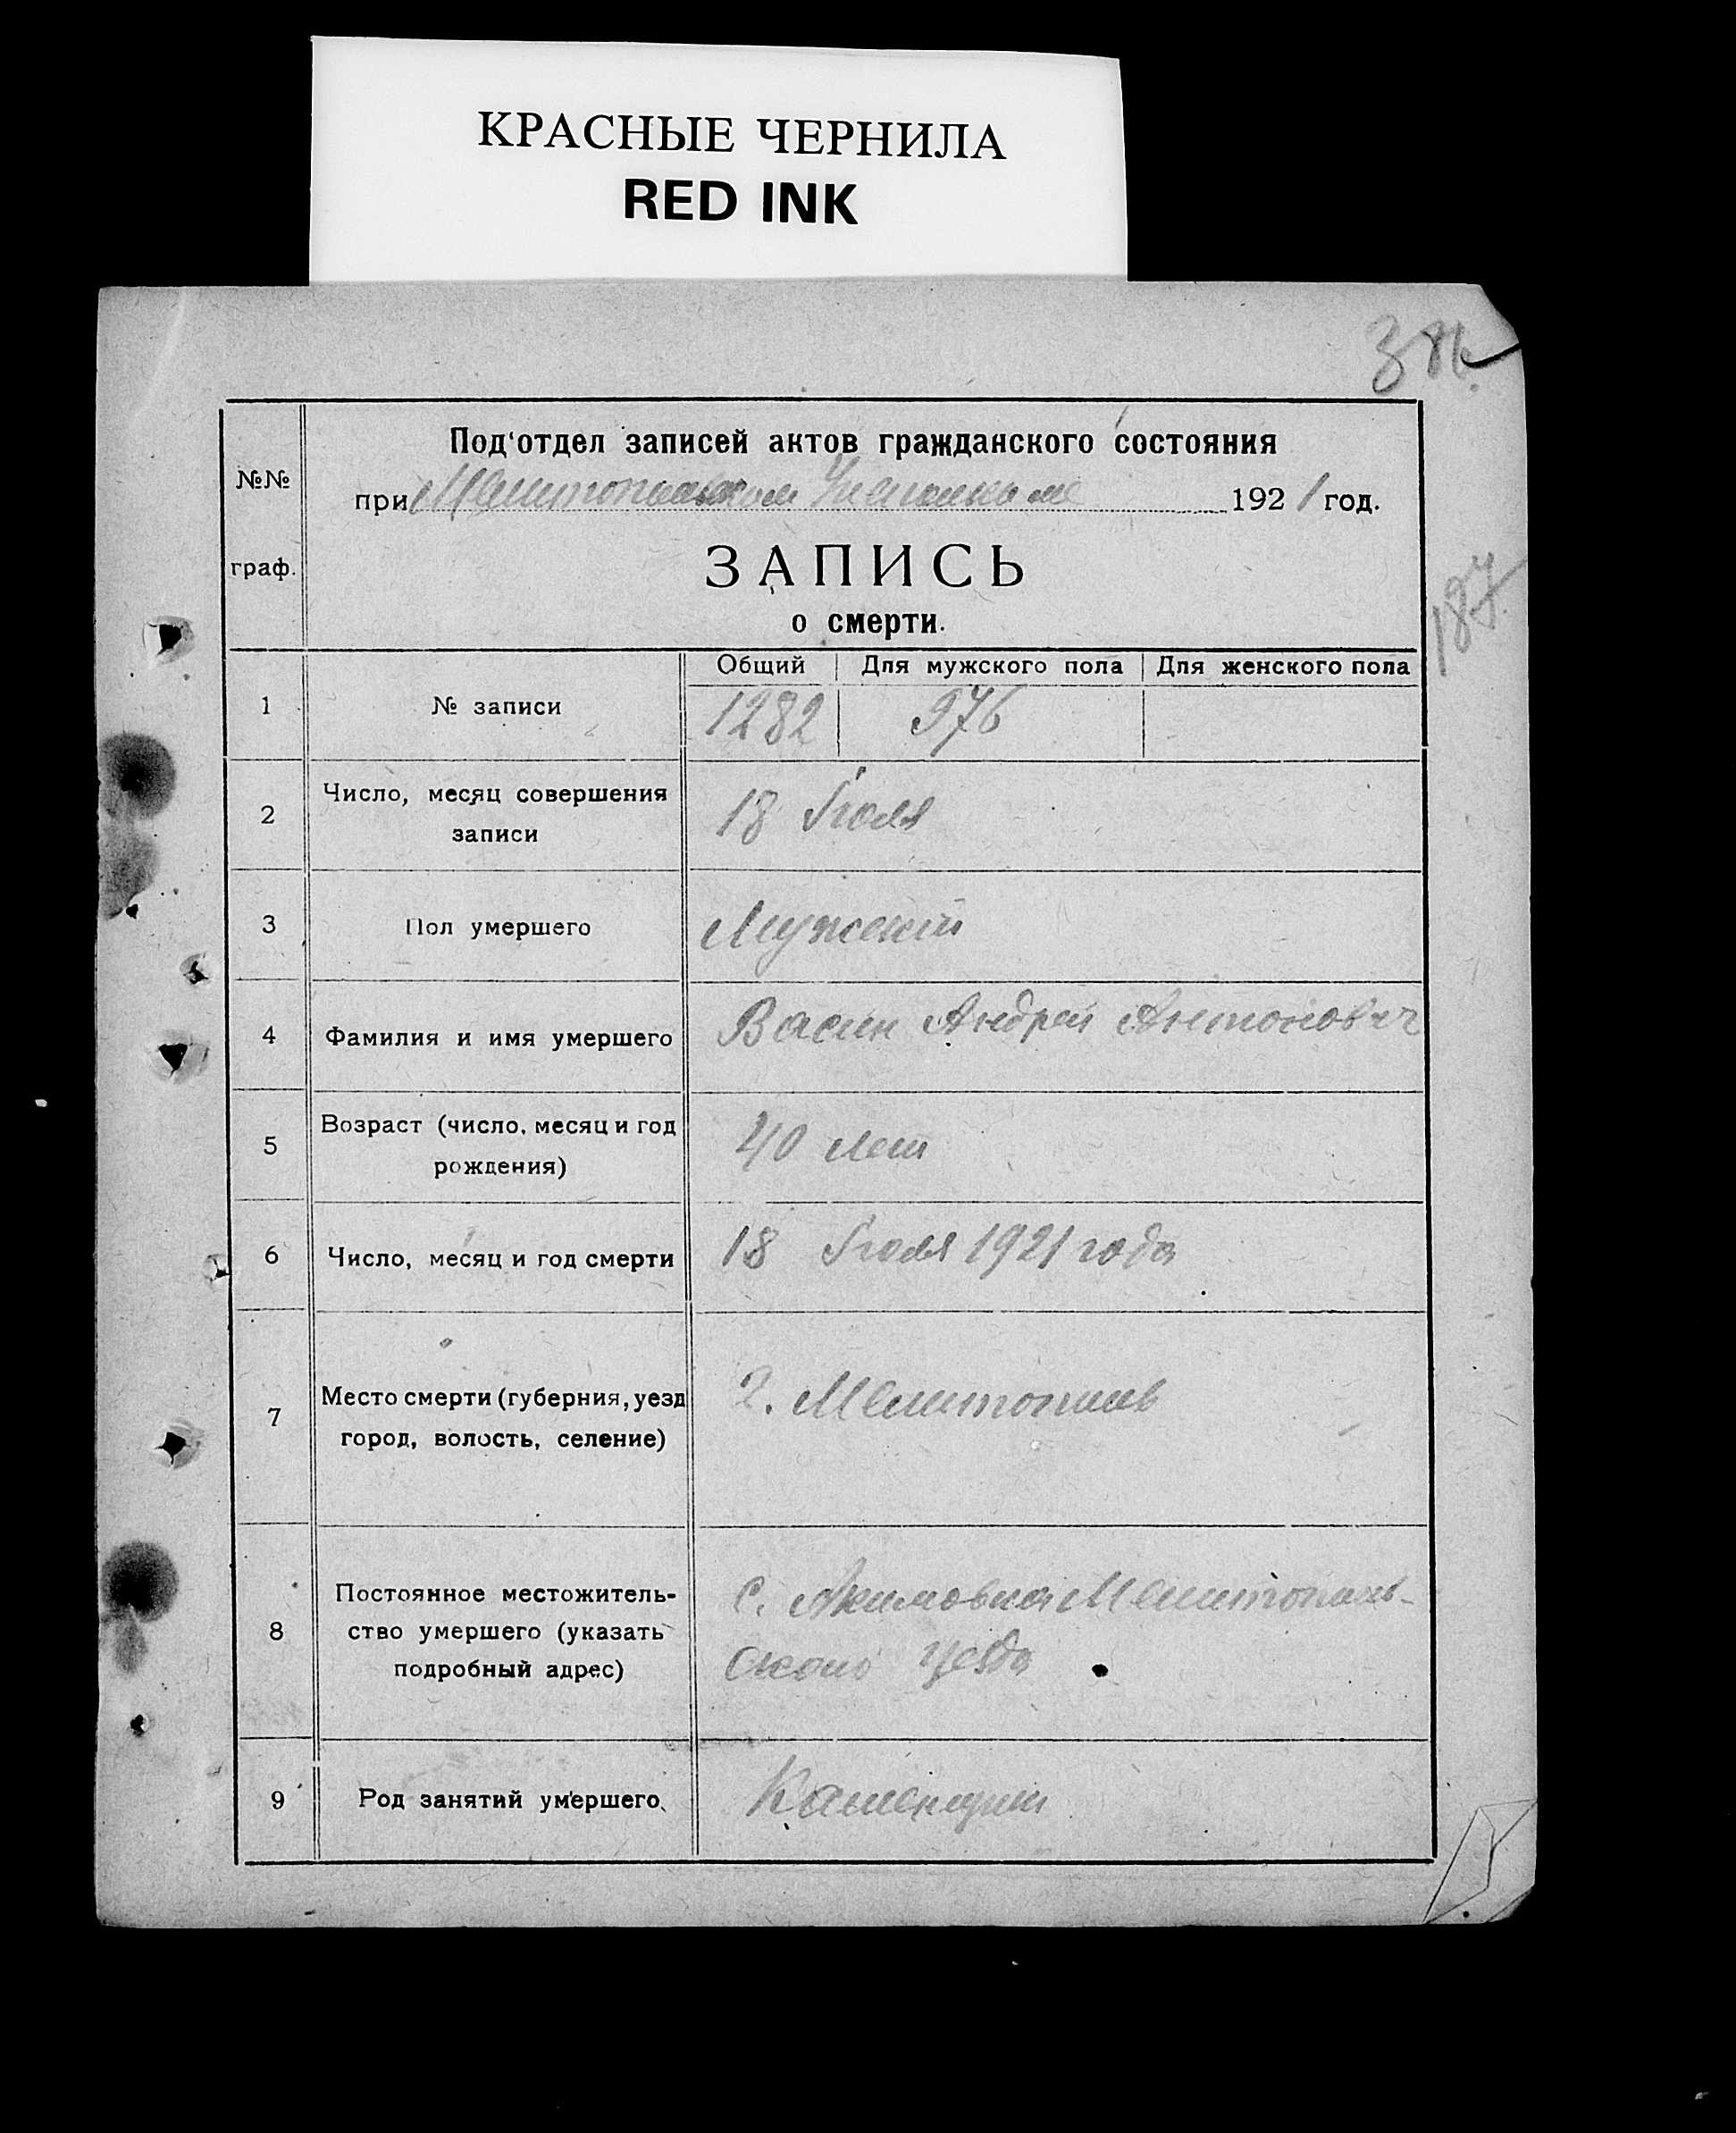 КРАСНЫЕ ЧЕРНИЛА
RED INK
Под'отдел записей актов гражданского состояния
№№
при Мелитопольском 1921 год.
граф.
ЗАПИСЬ
о смерти.
Общий Для мужского пола Для женского пола
1 № записи 1282 976
2 Число, месяц совершения
записи
18 Іюля
3 Пол умершего Мужской
4 Фамилия и имя умершего Васин Андрей Антонович
5 Возраст (число, месяц и год
рождения)
40 лет
6 Число, месяц и год смерти 18 Іюля 1921 года
7 Место смерти (губерния, уезд
город, волость, селение)
г. Мелитополь
8 Постоянное местожитель-
ство умершего (указать
подробный адрес)
с. Акимовка Мелитополь-
ского уезда
9 Род занятий умершего Каменщик
187